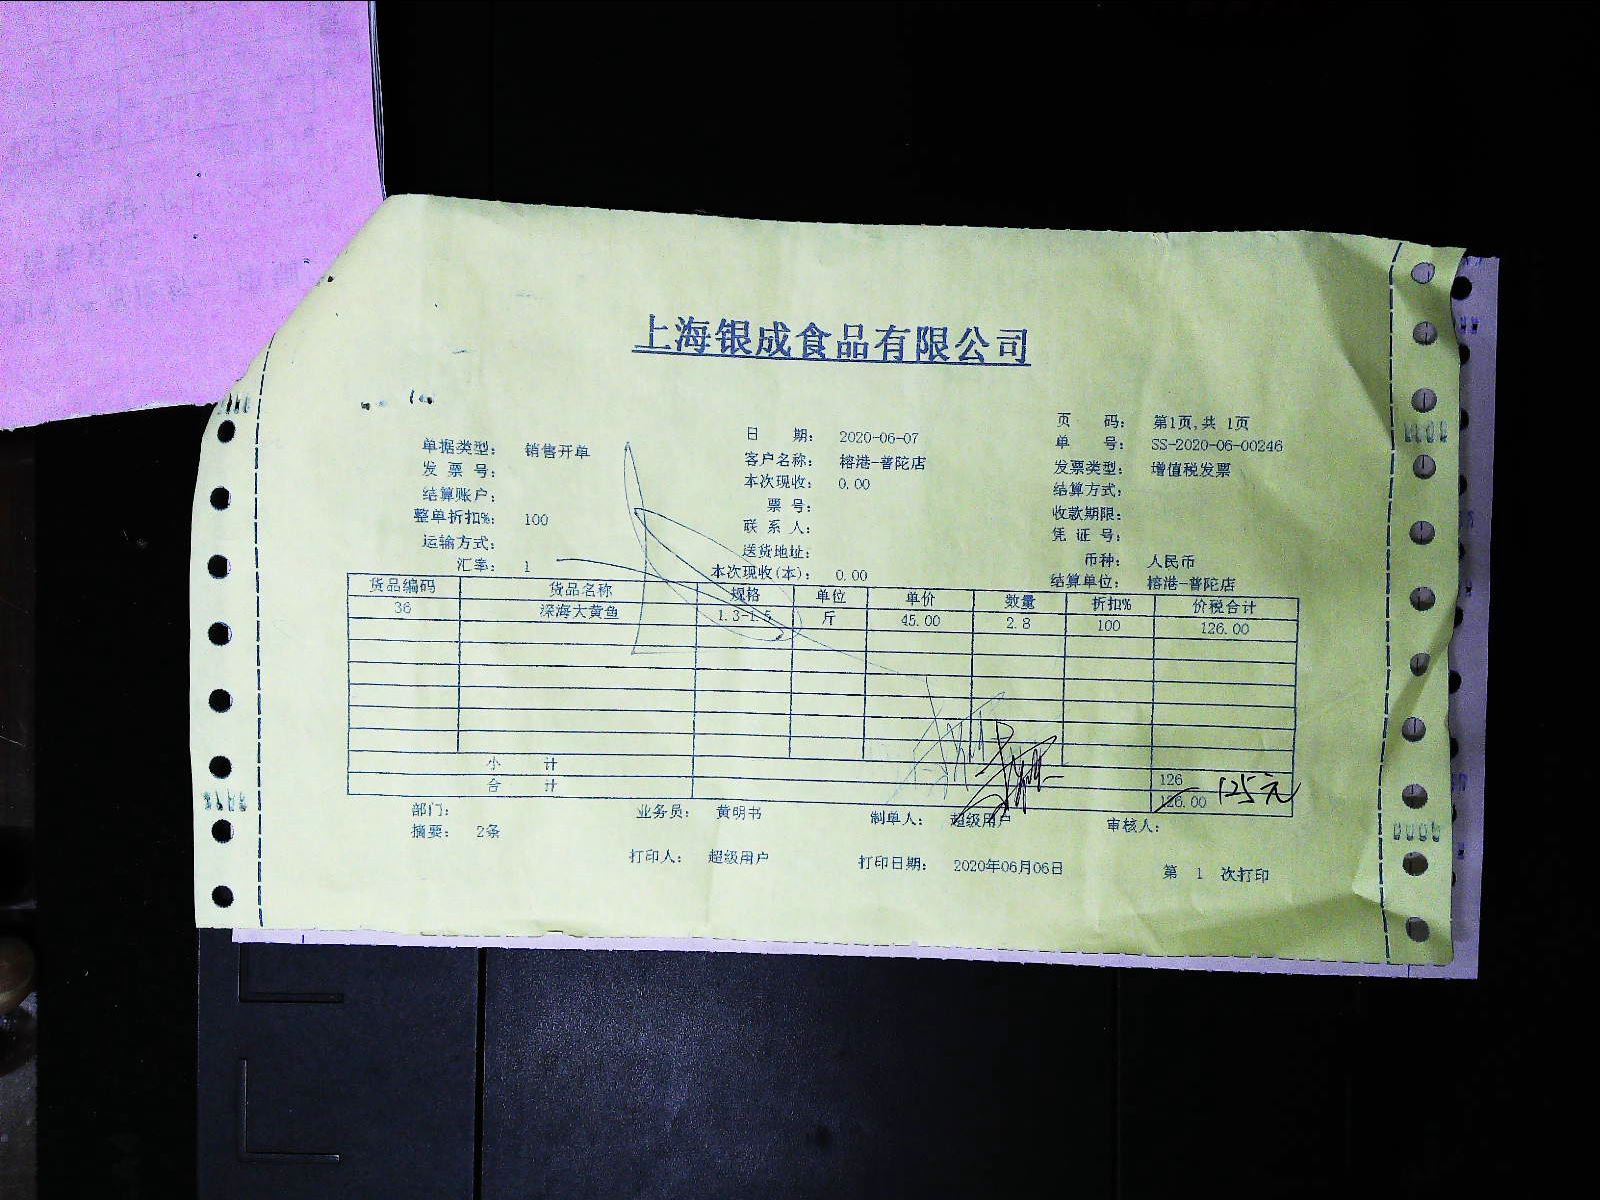 上海银成食品有限公司
页 码： 第1页,共 1页
单据类型： 销售开单 日 期： 2020-06-07 单 号： SS-2020-06-00246
发 票 号： 客户名称： 榕港-普陀店 发票类型： 增值税发票
结算账户： 本次现收： 0.00 结算方式：
整单折扣%： 100 票 号： 收款期限：
运输方式： 联 系 人： 凭 证 号：
送货地址： 币种： 人民币
汇率： 1 本次现收(本)： 0.00 结算单位： 榕港-普陀店
货品编码 货品名称 规格 单位 单价 数量 折扣% 价税合计
36 深海大黄鱼 1.3-1.5 斤 45.00 2.8 100 126.00
小 计 126
合 计 126.00 125元
部门： 业务员： 黄明书 制单人： 超级用户 审核人：
摘要： 2条
打印人： 超级用户 打印日期： 2020年06月06日 第 1 次打印